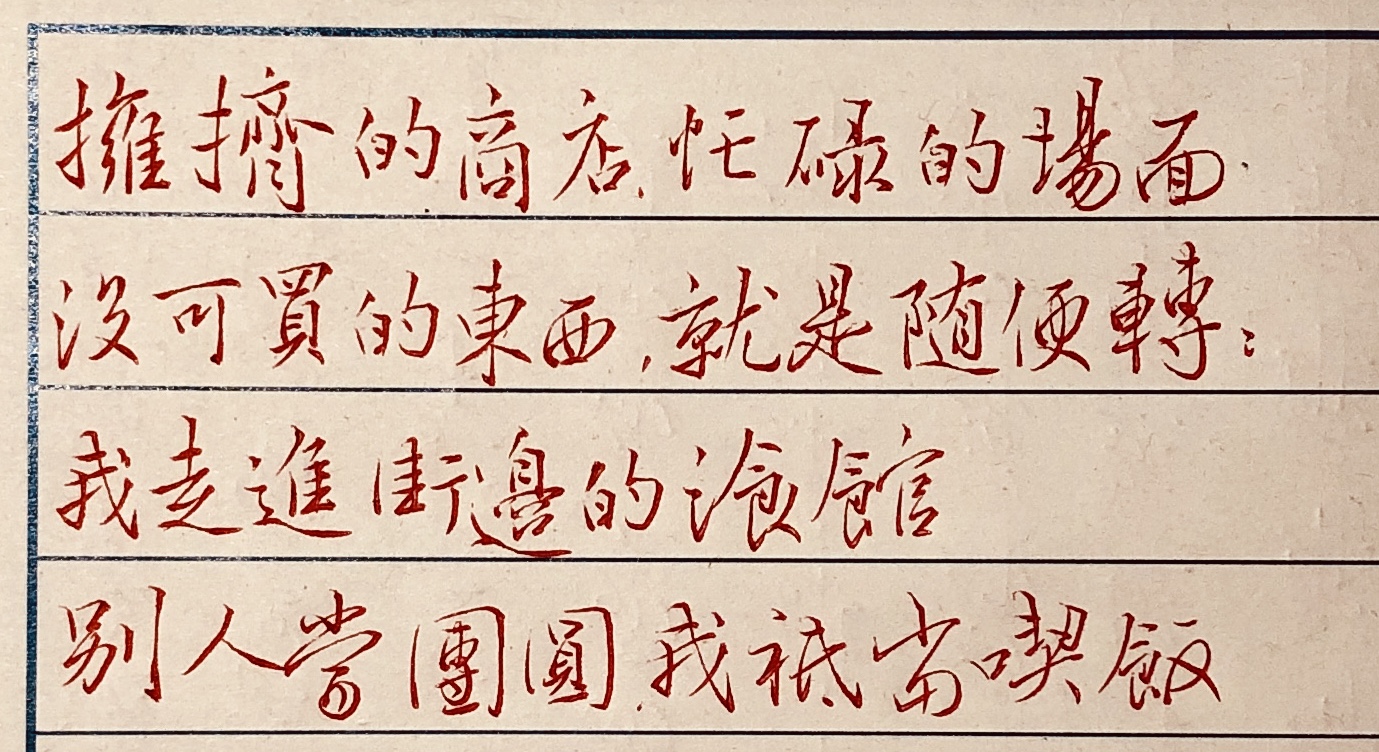 擁擠的商店,忙碌的場面.
沒可買的東西,就是随便轉;
我走進街邊的湌館
別人嘗團圓,我祗當喫飯